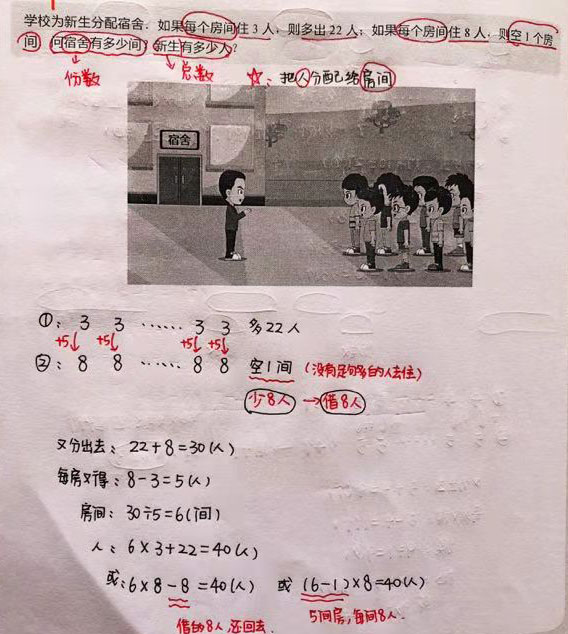 学校为新生分配宿舍．如果每个房间住3人，则多出22人；如果每个房间住8人，则空1个房
间，问宿舍有多少间？新生有多少人？
份数 总数 ☆：把人分配给房间
宿舍
①：3 3 …… 3 3 多22人
+5↓ +5↓ +5↓ +5↓
②：8 8 …… 8 8 空1间（没有足够多的人去住）
少8人→借8人
又分出去：22+8=30(人)
每房又得：8-3=5(人)
房间：30÷5=6(间)
人：6×3+22=40(人)
或：6×8-8=40(人) 或 (6-1)×8=40(人)
借的8人,还回去. 5间房,每间8人.